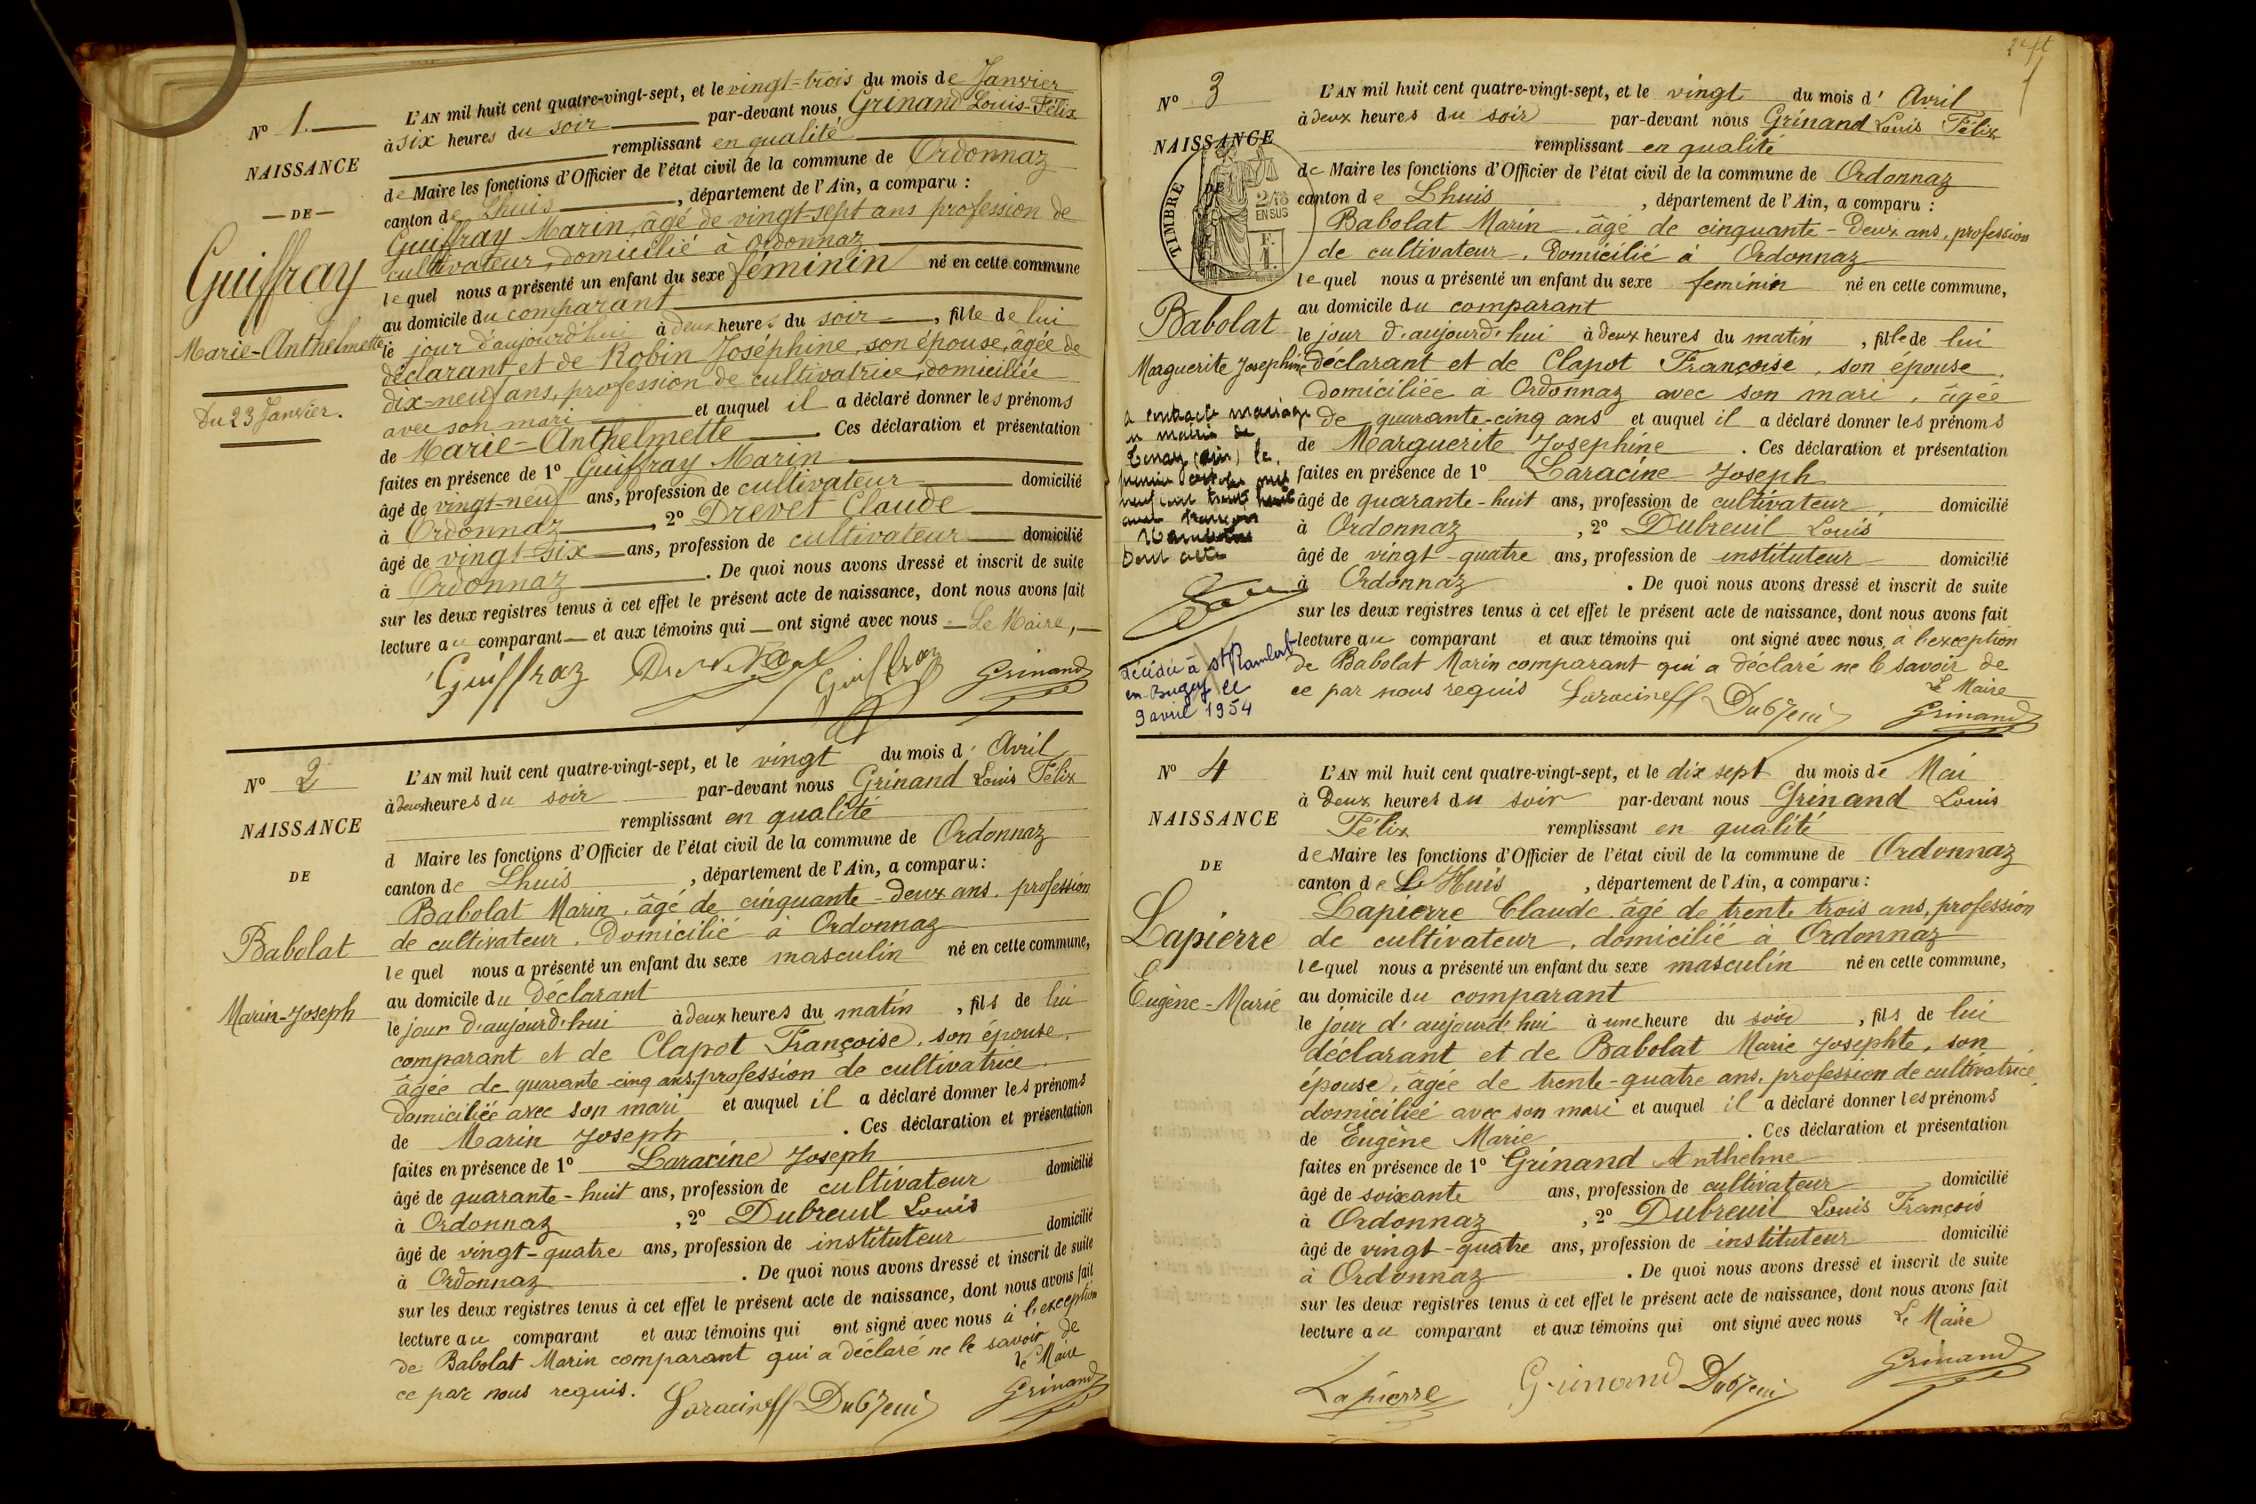 Nº 1.
NAISSANCE
— DE —
Guiffray
Marie-Anthelmette
Du 23 Janvier.
L'AN mil huit cent quatre-vingt-sept, et le vingt-trois du mois de Janvier
à six heures du soir par-devant nous Grinand Louis-Félix
remplissant en qualité
de Maire les fonctions d'Officier de l'état civil de la commune de Ordonnaz
canton de Lhuis, département de l'Ain, a comparu :
Guiffray Marin, âgé de vingt-sept ans profession de
cultivateur, domicilié à Ordonnaz
lequel nous a présenté un enfant du sexe féminin né en cette commune
au domicile du comparant
le jour d'aujourd'hui à deux heures du soir, fille de lui
déclarant et de Robin Joséphine, son épouse, âgée de
dix-neuf ans, profession de cultivatrice, domiciliée
avec son mari et auquel il a déclaré donner les prénoms
de Marie-Anthelmette. Ces déclaration et présentation
faites en présence de 1º Guiffray Marin
âgé de vingt-neuf ans, profession de cultivateur domicilié
à Ordonnaz, 2º Drevet Claude
âgé de vingt-six ans, profession de cultivateur domicilié
à Ordonnaz. De quoi nous avons dressé et inscrit de suite
sur les deux registres tenus à cet effet le présent acte de naissance, dont nous avons fait
lecture au comparant et aux témoins qui ont signé avec nous Le Maire,
Guiffray Guiffray Grinand
Nº 2
NAISSANCE
DE
Babolat
Marin-Joseph
L'AN mil huit cent quatre-vingt-sept, et le vingt du mois d'Avril
à deux heures du soir par-devant nous Grinand Louis Félix
remplissant en qualité
d Maire les fonctions d'Officier de l'état civil de la commune de Ordonnaz
canton de Lhuis, département de l'Ain, a comparu :
Babolat Marin, âgé de cinquante-deux ans, profession
de cultivateur, domicilié à Ordonnaz
lequel nous a présenté un enfant du sexe masculin né en cette commune,
au domicile du déclarant
le jour d'aujourd'hui à deux heures du matin, fils de lui
comparant et de Clapot Françoise, son épouse,
âgée de quarante-cinq ans, profession de cultivatrice
domiciliée avec son mari et auquel il a déclaré donner les prénoms
de Marin Joseph. Ces déclaration et présentation
faites en présence de 1º Laracine Joseph
âgé de quarante-huit ans, profession de cultivateur domicilié
à Ordonnaz, 2º Dubreuil Louis
âgé de vingt-quatre ans, profession de instituteur domicilié
à Ordonnaz. De quoi nous avons dressé et inscrit de suite
sur les deux registres tenus à cet effet le présent acte de naissance, dont nous avons fait
lecture au comparant et aux témoins qui ont signé avec nous à l'exception
de Babolat Marin comparant qui a déclaré ne le savoir de
ce par nous requis. le Maire
Laracine Dubreuil Grinand
Nº 3
NAISSANCE
DE
TIMBRE
2/10
EN SUS
Babolat
Marguerite Josephine
a contracté mariage
en mairie de
Tenay (Ain) le
premier octobre mil
neuf cent trente huit
avec
Dont acte
Décédée à St Rambert
en-Bugey le
9 avril 1954
L'AN mil huit cent quatre-vingt-sept, et le vingt du mois d'Avril
à deux heures du soir par-devant nous Grinand Louis Félix
remplissant en qualité
de Maire les fonctions d'Officier de l'état civil de la commune de Ordonnaz
canton de Lhuis, département de l'Ain, a comparu :
Babolat Marin, âgé de cinquante-deux ans, profession
de cultivateur, domicilié à Ordonnaz
lequel nous a présenté un enfant du sexe feminin né en cette commune,
au domicile du comparant
le jour d'aujourd'hui à deux heures du matin, fille de lui
déclarant et de Clapot Françoise, son épouse,
domiciliée à Ordonnaz avec son mari, âgée
de quarante-cinq ans et auquel il a déclaré donner les prénoms
de Marguerite Josephine. Ces déclaration et présentation
faites en présence de 1º Laracine Joseph
âgé de quarante-huit ans, profession de cultivateur, domicilié
à Ordonnaz, 2º Dubreuil Louis
âgé de vingt-quatre ans, profession de instituteur domicilié
à Ordonnaz. De quoi nous avons dressé et inscrit de suite
sur les deux registres tenus à cet effet le présent acte de naissance, dont nous avons fait
lecture au comparant et aux témoins qui ont signé avec nous, à l'exception
de Babolat Marin comparant qui a déclaré ne le savoir de
ce par nous requis Le Maire
Laracine Dubreuil Grinand
Nº 4
NAISSANCE
DE
Lapierre
Eugène-Marie
L'AN mil huit cent quatre-vingt-sept, et le dix sept du mois de Mai
à Deux heures du soir par-devant nous Grinand Louis
Félix remplissant en qualité
de Maire les fonctions d'Officier de l'état civil de la commune de Ordonnaz
canton de L'Huis, département de l'Ain, a comparu :
Lapierre Claude âgé de trente trois ans, profession
de cultivateur, domicilié à Ordonnaz
lequel nous a présenté un enfant du sexe masculin né en cette commune,
au domicile du comparant
le jour d'aujourd'hui à une heure du soir, fils de lui
déclarant et de Babolat Marie Josephte, son
épouse, âgée de trente-quatre ans, profession de cultivatrice,
domiciliée avec son mari et auquel il a déclaré donner les prénoms
de Eugène Marie. Ces déclaration et présentation
faites en présence de 1º Grinand Anthelme
âgé de soixante ans, profession de cultivateur domicilié
à Ordonnaz, 2º Dubreuil Louis François
âgé de vingt-quatre ans, profession de instituteur domicilié
à Ordonnaz. De quoi nous avons dressé et inscrit de suite
sur les deux registres tenus à cet effet le présent acte de naissance, dont nous avons fait
lecture au comparant et aux témoins qui ont signé avec nous Le Maire
Lapierre Grinand Dubreuil Grinand